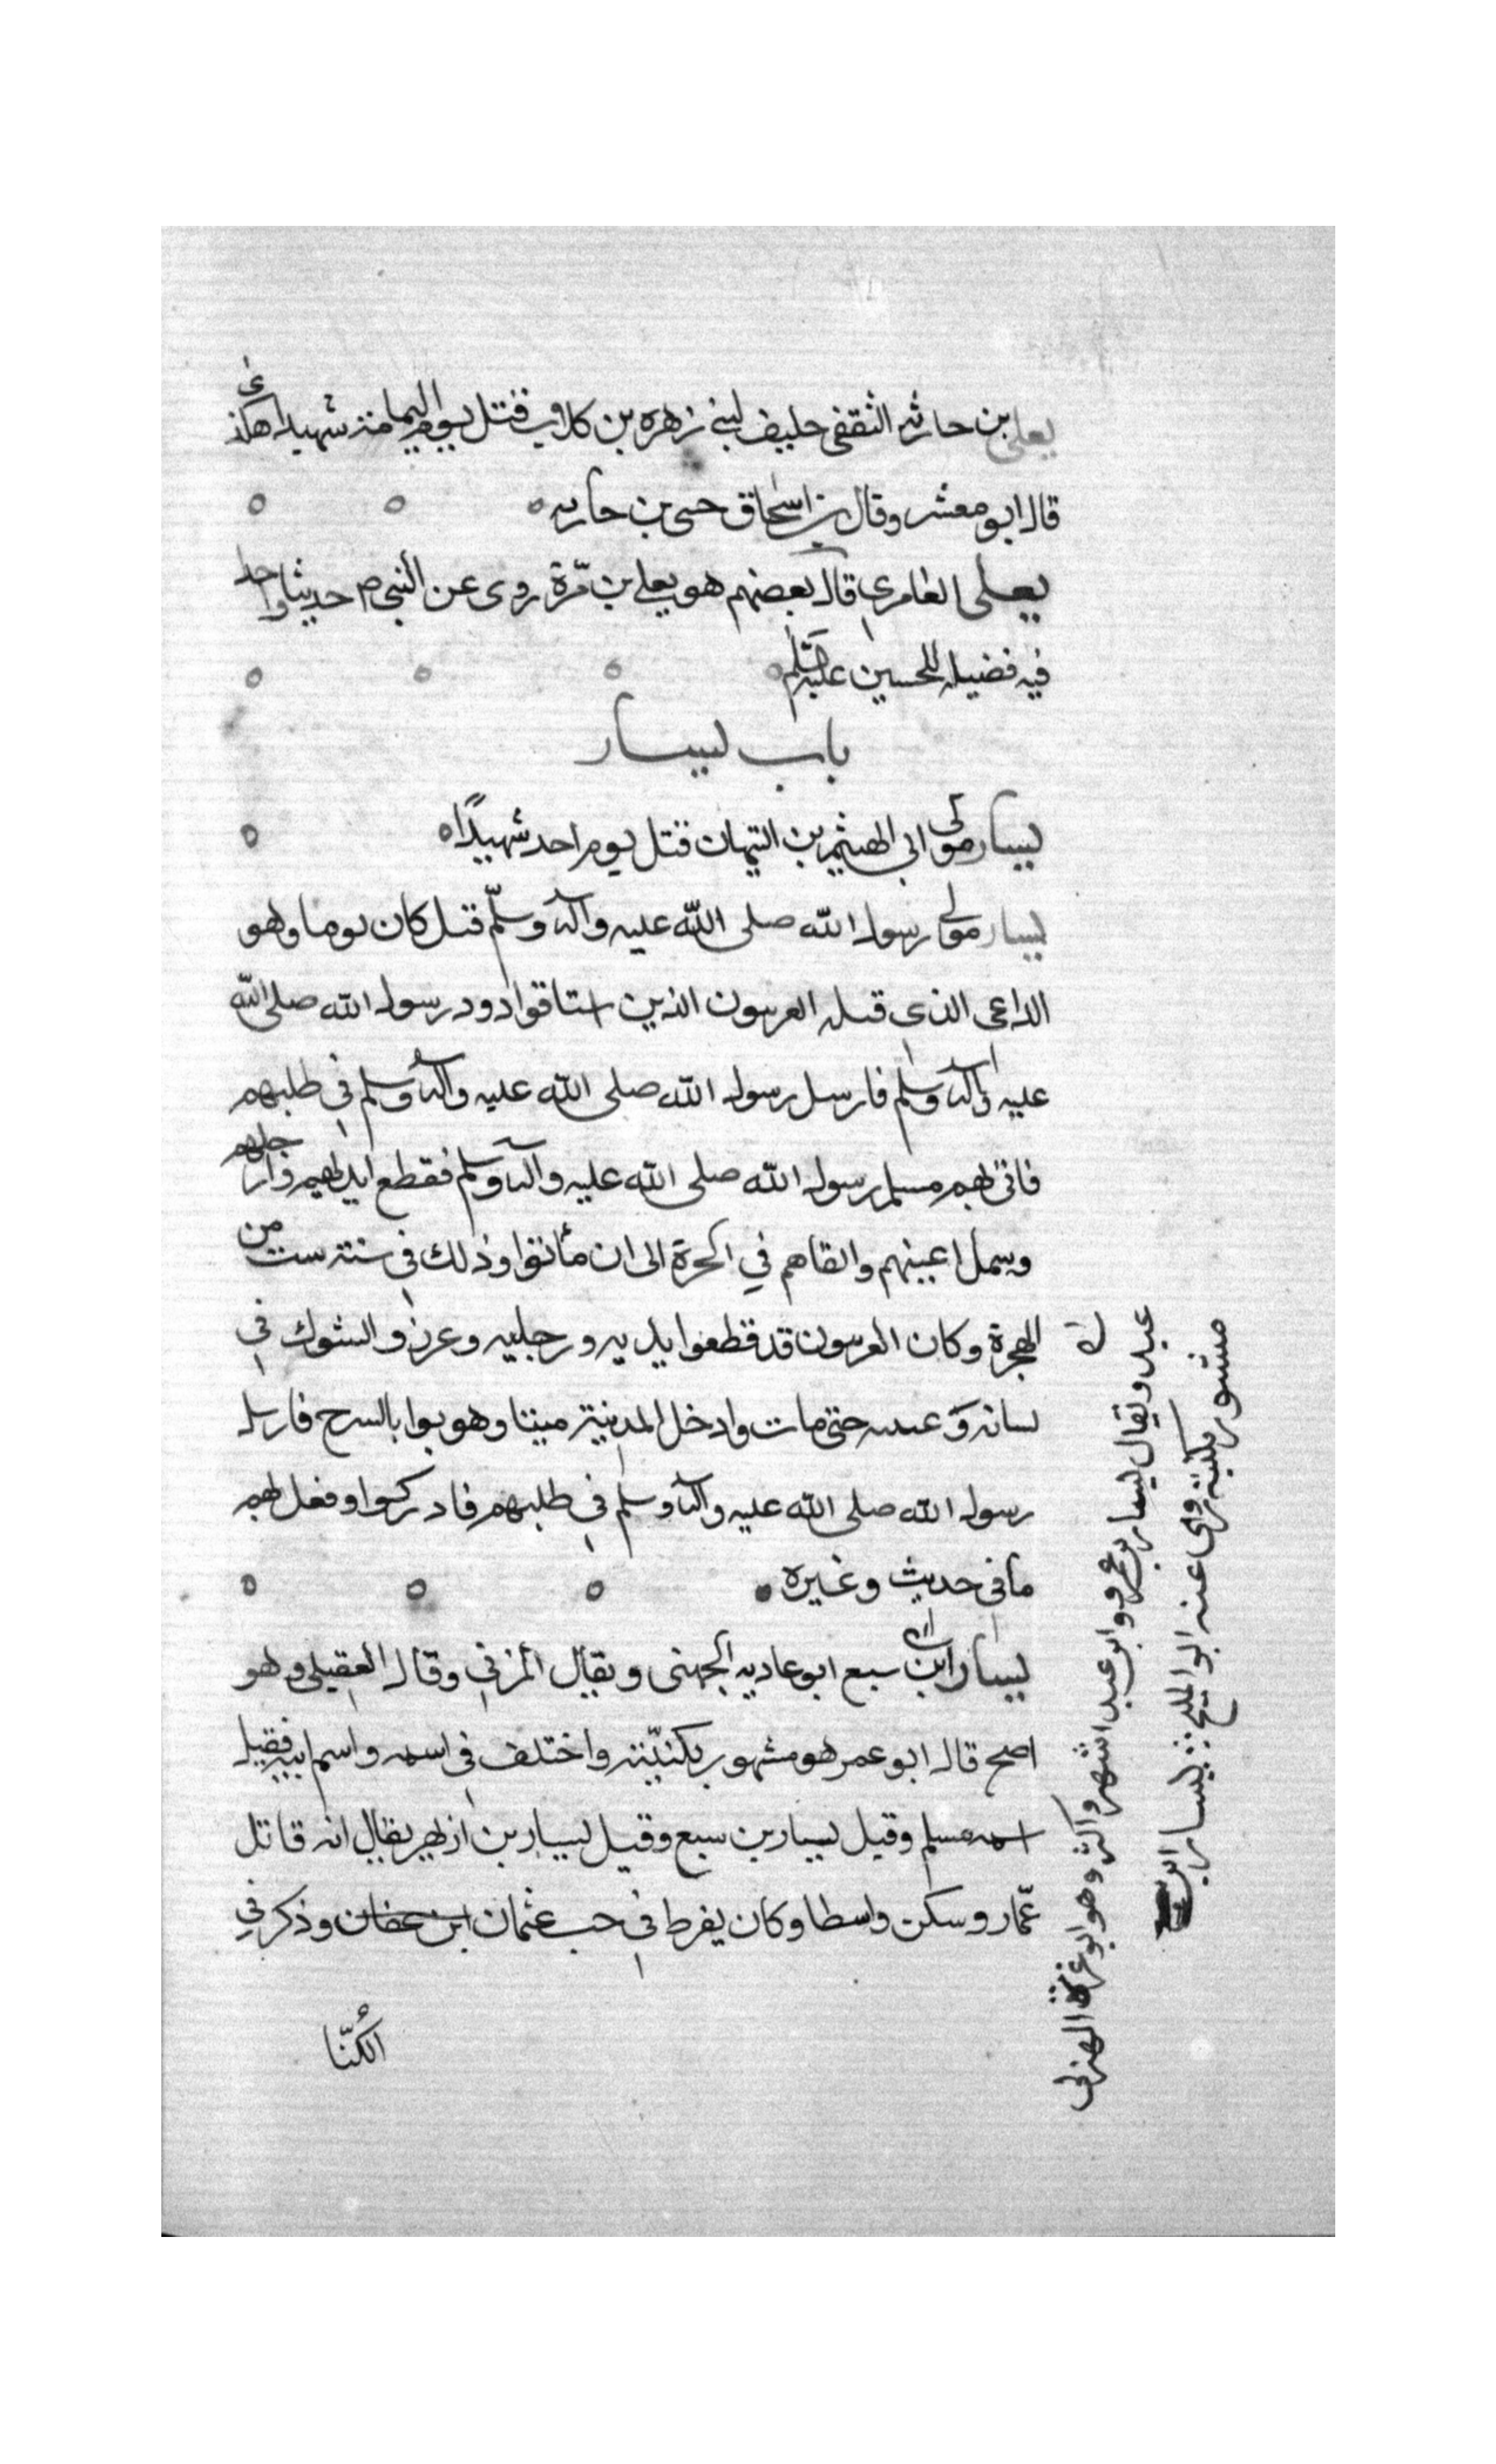 يعلى بن حارثه الثقفى حليف لبنى زهره بن كلاب قتل يوم اليمامة شهيدا هكذا
قال ابو معشر وقال بن اسحاق حى بن حاريه
يعلى العامرى قال بعضهم هو يعلى بن مّرة روى عن النبى ص حديثا واحدا
فيه فضيله للحسين عليه السّلم
باب يسار
يسار مولى ابى الهيثم بن التيهان قتل يوم احد شهيدًا
يسار مولى رسول الله صلى اللّه عليه وآله وسلّم قتل كان نوبيا وهو
الداعى الذى قتله العرنيون الذين استاقوا ذود رسول الله صلى اللّه
عليه وآله وسلم فارسل رسول الله صلى اللّه عليه وآله وسلم فى طلبهم
فاتى بهم مسلم رسول الله صلى الله عليه وآله وسلم فقطع ايديهم وارجلهم
وسمل اعينهم والقاهم في الحرة الى ان ماتوا وذلك فى سنة ست من
الهجرة وكان العرنيون قد قطعوا يديه ورجليه وغرزوا الشوك فى
لسانه وَ عينيه حتى مات وادخل المدينة ميتا وهربوا بالسرح فارسل
رسول الله صلى الله عليه وآله وسلم فى طلبهم فادركوا وفعل بهم
ما فى حديث وغيره
يسار ابن سبع ابو عاديه الجهنى ويقال المزنى وقال العقيلى وهو
اصح قال ابو عمر هو مشهور بكنيّته واختلف فى اسمه واسم ابيه فقيل
اسمه مسلم وقيل يسار بن سبع وقيل يسار بن ازهر يقال انه قاتل
عمّار وسكن واسطا وكان يفرط فى حب عثمان ابن عفان وذكر فى
الكنّا
مشهور بكنيته روى عنه ابو المليح يسار ابن
عبد ويقال يسار بن عمرو وابو عبد اشهر واكثر وهو ابو عزة الهذلى